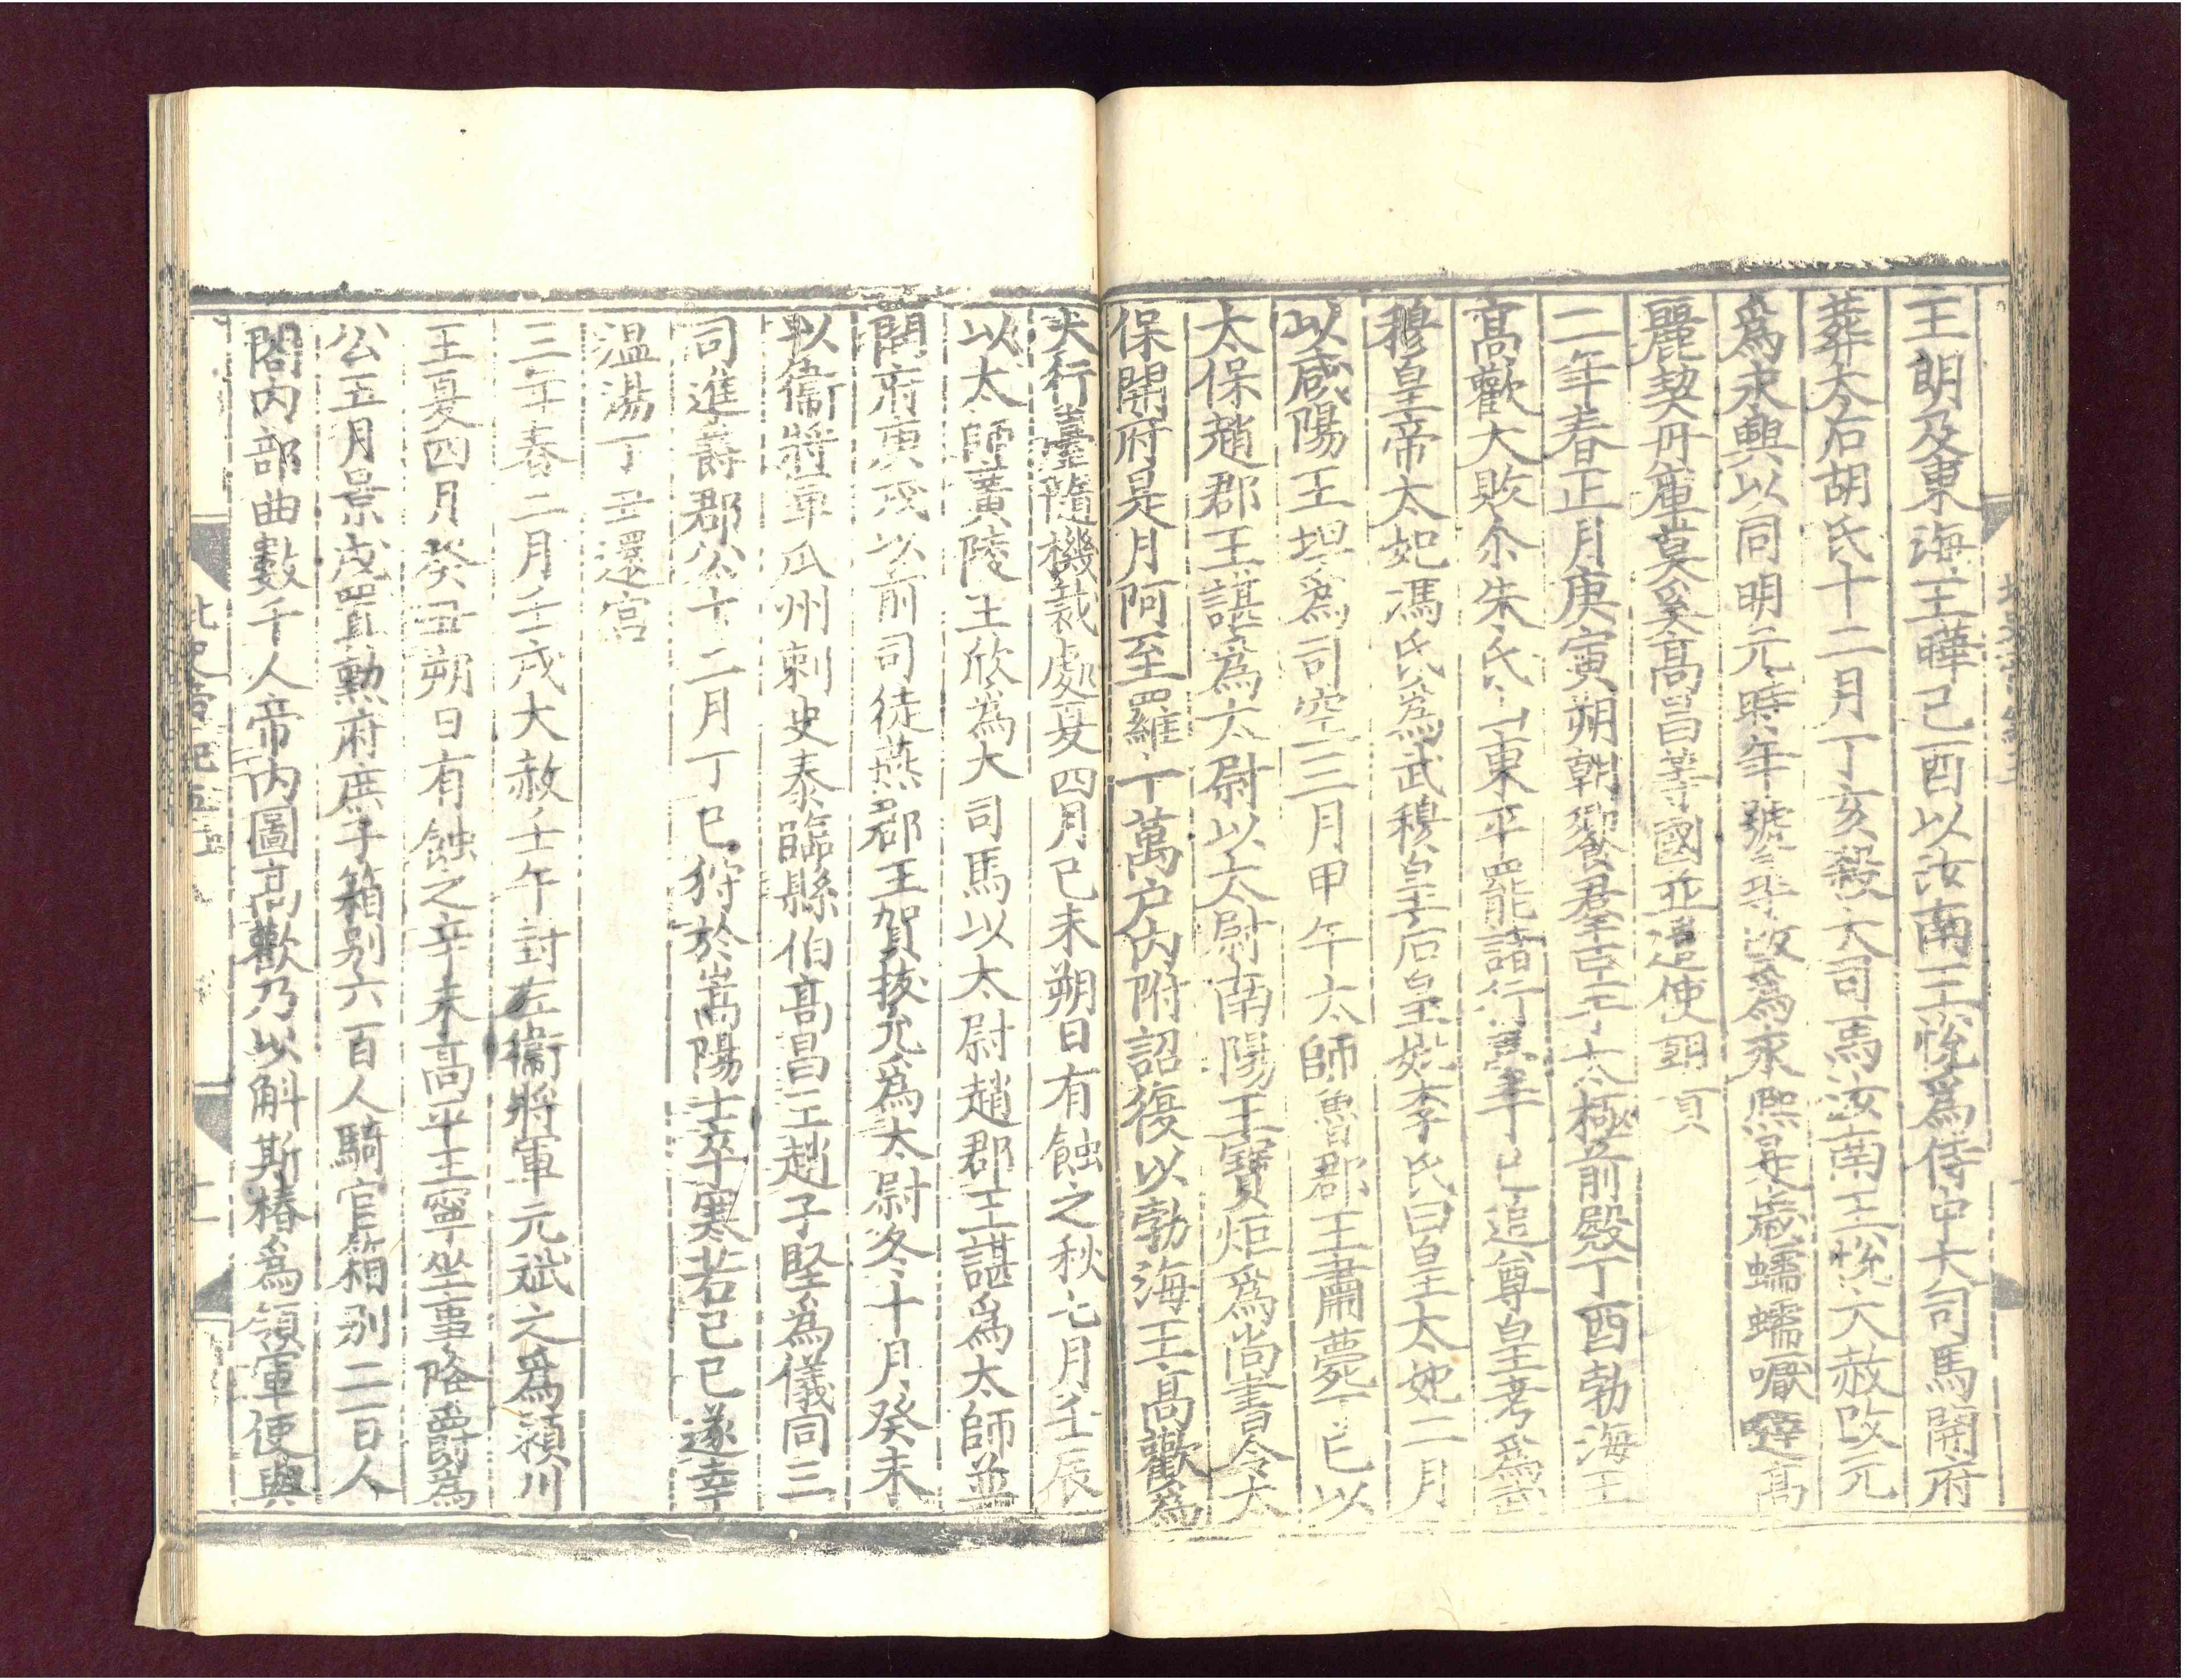 王朗及東海王曄己酉以汝南王悅爲侍中大司馬開府
葬太后胡氏十二月丁亥殺大司馬汝南王悅大赦改元
爲永興以同明元時年號尋改爲永熙是歲蠕蠕嚈噠高
麗契丹庫莫奚高昌等國並遣使朝貢
二年春正月庚寅朔朝饗羣臣于太極前殿丁酉勃海王
高歡大敗尒朱氏山東平罷諸行臺辛亡追尊皇考爲武
穆皇帝太妃馮氏爲武穆皇后皇妣李氏曰皇太妃二月
以咸陽王坦爲司空三月甲午太師魯郡王肅薨丁巳以
太保趙郡王諶爲太尉以太尉南陽王寶炬爲尚書令太
保開府是月阿至羅十萬戶內附詔復以勃海王高歡爲
大行臺隨機裁處夏四月己未朔日有蝕之秋七月壬辰
以太師廣陵王欣爲大司馬以太尉趙郡王諶爲太師並
開府庚戌以前司徒燕郡王賀拔允爲太尉冬十月癸未
以衞將軍瓜州刺史泰臨縣伯高昌王趙子堅爲儀同三
司進爵郡公十二月丁巳狩於嵩陽士卒寒苦己巳遂幸
溫湯丁丑還宮
三年春二月壬戌大赦壬午封左衞將軍元斌之爲潁川
王夏四月癸丑朔日有蝕之辛未高平王寧坐事降爵爲
公五月景戌置勳府庶子箱别六百人騎官箱别二百人
閤內部曲數千人帝內圖高歡乃以斛斯椿爲領軍使與
北史帝紀五